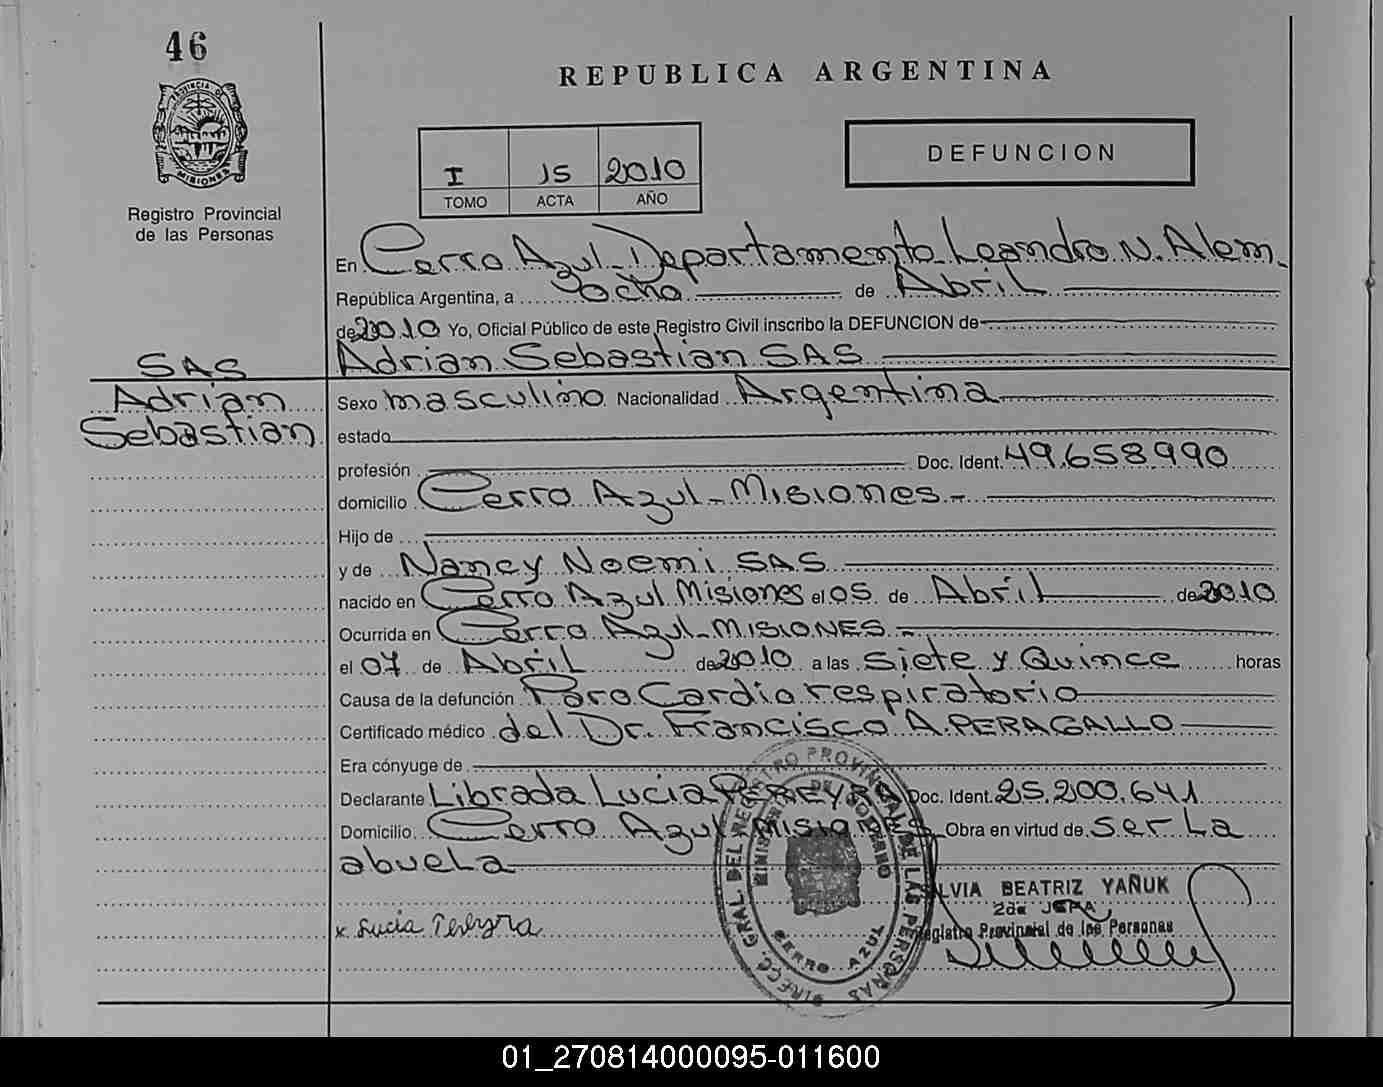 46
PROVINCIA DE
MISIONES
Registro Provincial
de las Personas
REPUBLICA ARGENTINA
I 15 2010
TOMO ACTA AÑO
DEFUNCION
En Cerro Azul_Departamento Leandro N. Alem_
República Argentina, a ocho de Abril
de 2010 Yo, Oficial Público de este Registro Civil inscribo la DEFUNCION de
Adrian Sebastian SAS
SAS
Adrian
Sebastian
Sexo masculino Nacionalidad Argentina
estado
profesión Doc. Ident. 49.658.990
domicilio Cerro Azul_Misiones_
Hijo de
y de Nancy Noemi SAS
nacido en Cerro Azul Misiones el 05 de Abril de 2010
Ocurrida en Cerro Azul_MISIONES_
el 07 de Abril de 2010 a las siete y Quince horas
Causa de la defunción Paro Cardio respiratorio
Certificado médico del Dr. Francisco A. PERAGALLO
Era cónyuge de
Declarante Librada Lucia PEREYRA Doc. Ident. 25.200.641
Domicilio Cerro Azul Misiones Obra en virtud de ser la
abuela
x Lucia Pereyra
DIRECC. GRAL. DEL REGISTRO PROVINCIAL DE LAS PERSONAS
MINISTERIO DE GOBIERNO
CERRO AZUL
SILVIA BEATRIZ YAÑUK
2da JEFA
Registro Provincial de las Personas
01_270814000095-011600